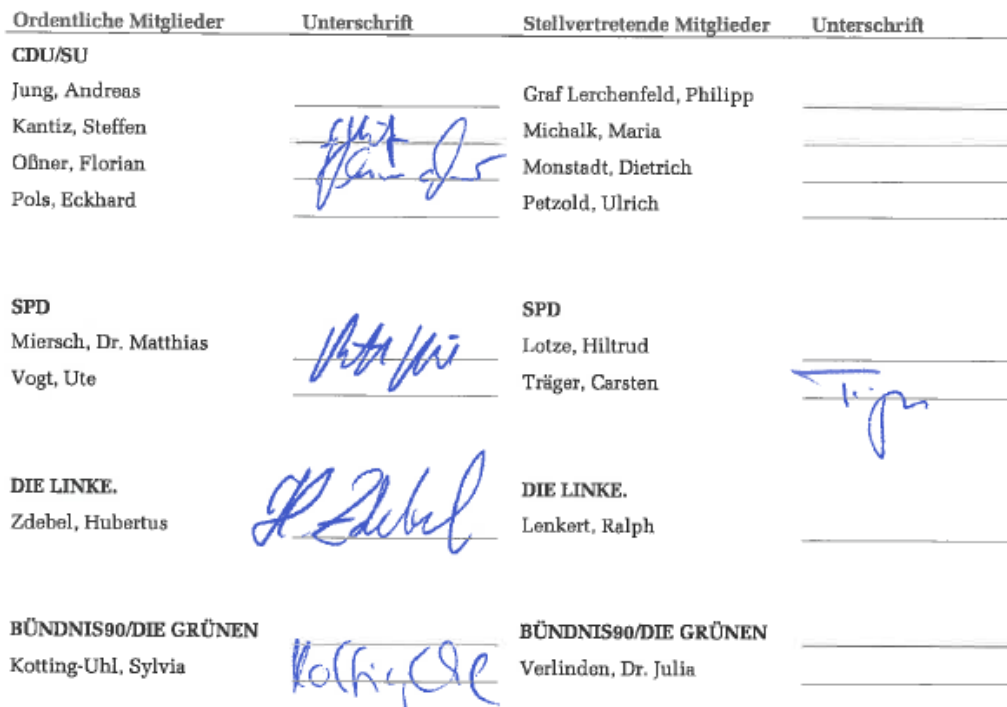 Ordentliche Mitglieder Unterschrift Stellvertretende Mitglieder Unterschrift
CDU/SU
Jung, Andreas Graf Lerchenfeld, Philipp
Kantiz, Steffen Michalk, Maria
Oßner, Florian Monstadt, Dietrich
Pols, Eckhard Petzold, Ulrich
SPD SPD
Miersch, Dr. Matthias Lotze, Hiltrud
Vogt, Ute Träger, Carsten
DIE LINKE. DIE LINKE.
H. Zdebel
Zdebel, Hubertus Lenkert, Ralph
BÜNDNIS90/DIE GRÜNEN BÜNDNIS90/DIE GRÜNEN
Kotting-Uhl, Sylvia Kotting-Uhl Verlinden, Dr. Julia